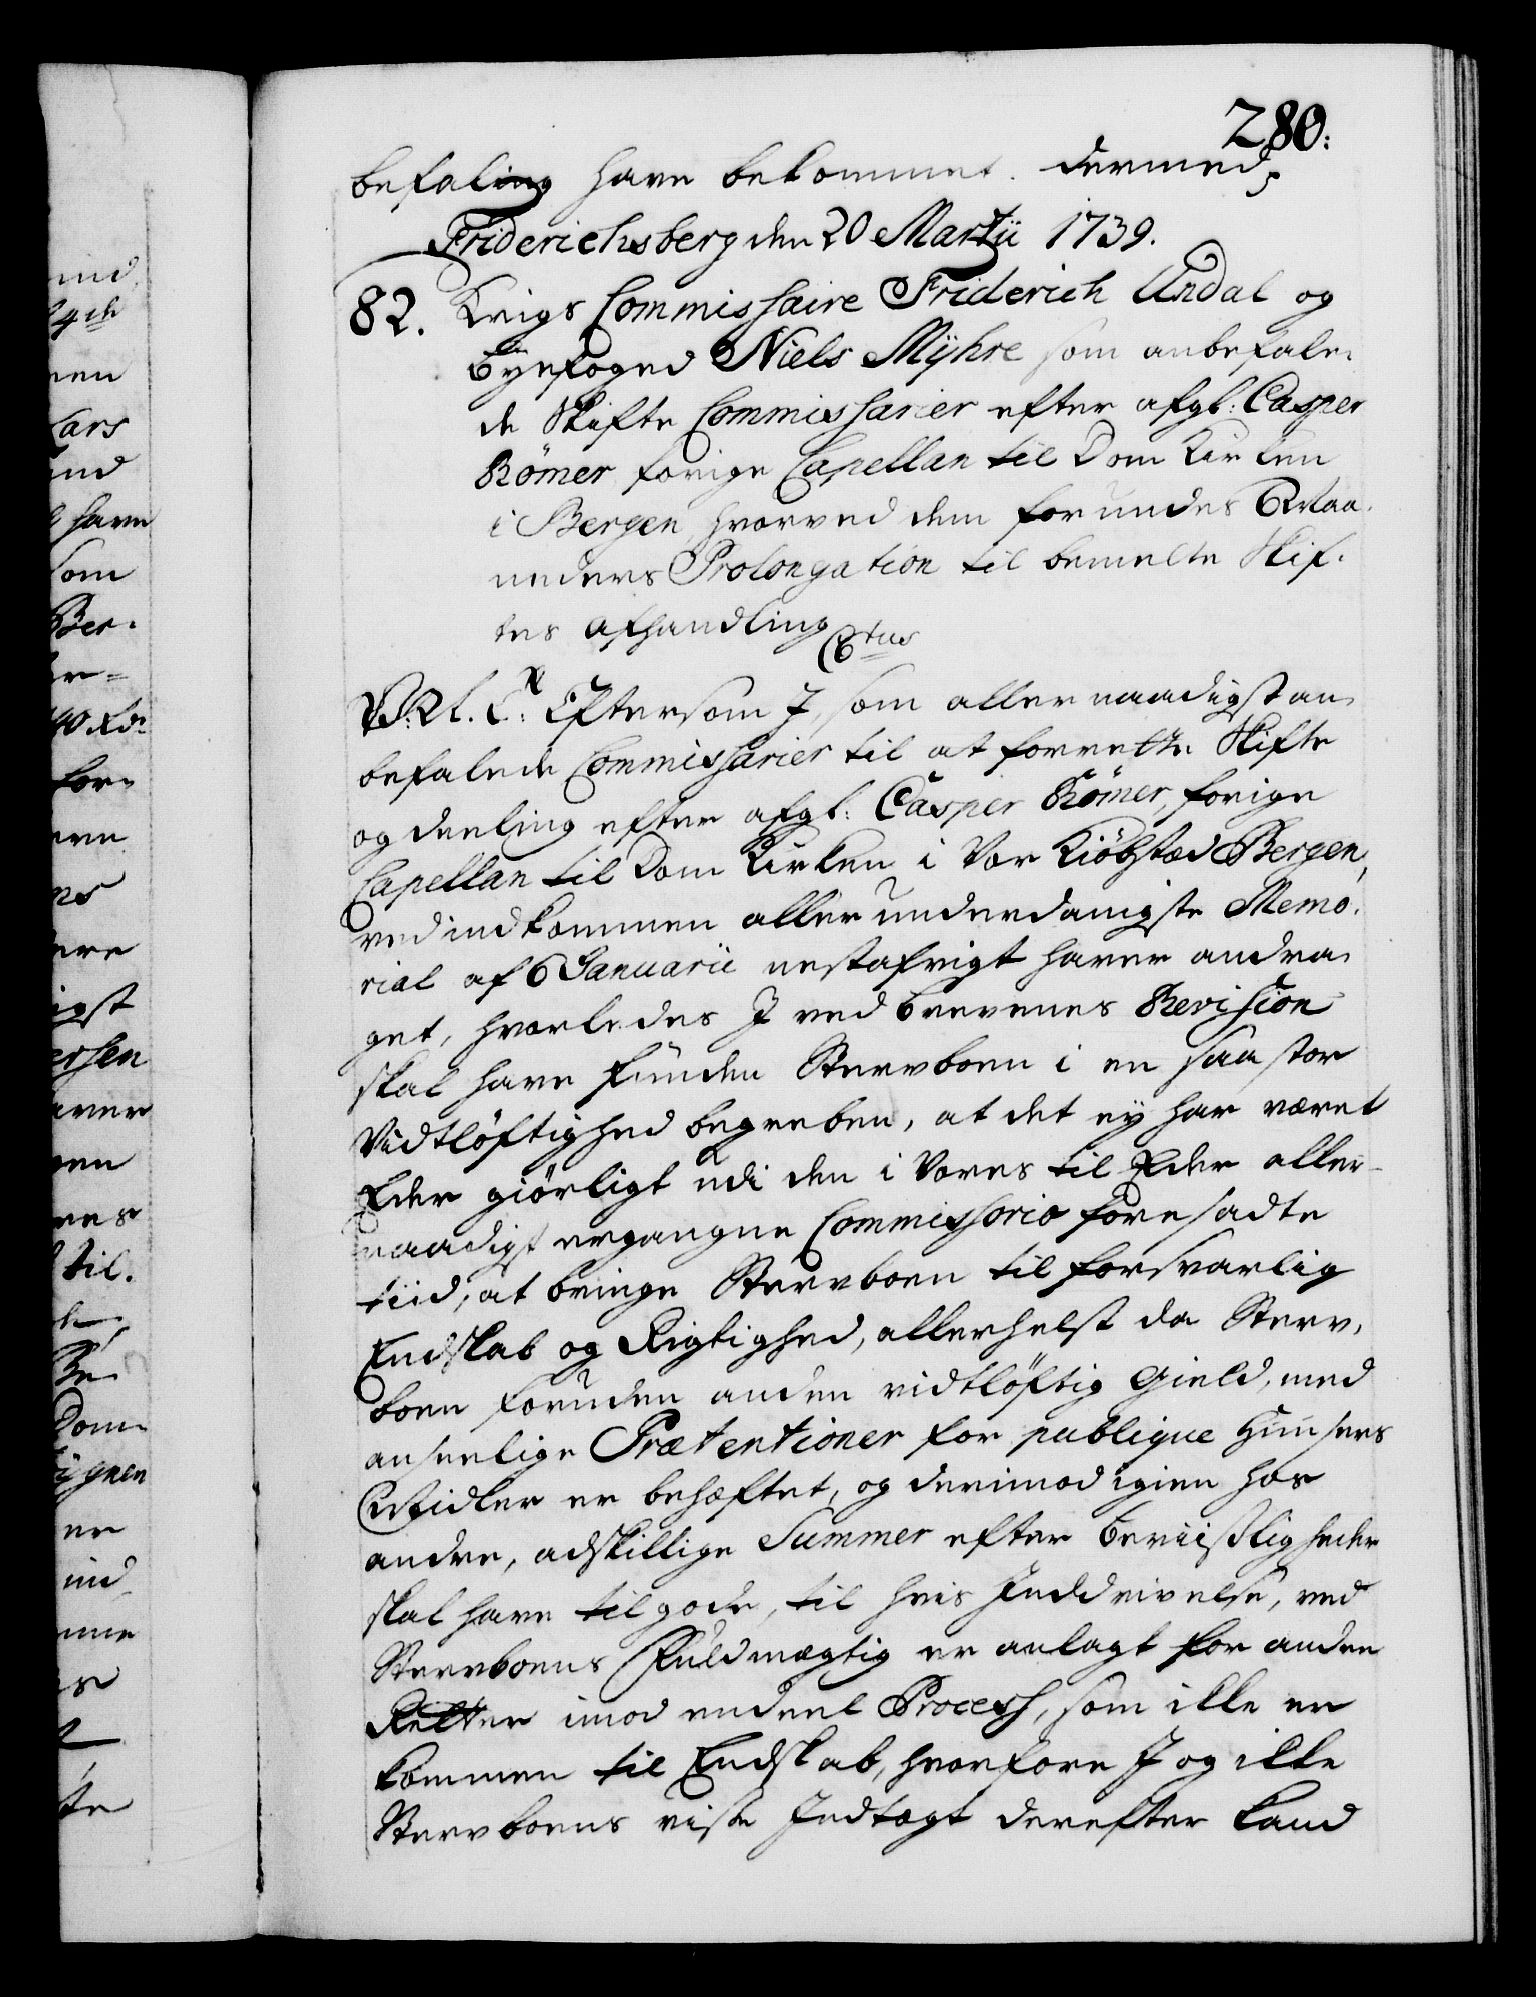 280.
befaling have bekommet. dermed
Friderichsberg den 20 Martii 1739.
82. Krigs Commissaire Friderich Undal og
Byefoged Niels Myhre som anbefale-
de Skifte Commissarier efter afgl: Casper
Römer forige Capellan til Dom Kirken
i Bergen, hvorved dem forundes 6 Maa-
neders Prolongation til bemelte Skif-
tes afhandling
C6tus
V: A. C: Eftersom I, som allernaadigst an-
befalede Commissarier til at forrette Skifte
og deeling efter afgl: Casper Römer, forige
Capellan til Dom Kirken i Vor Kiöbstæd Bergen,
ved indkommen allerunderdanigste Memo-
rial af 6 Januarii nestafvigt haver andra-
get, hvorledes I ved brevenes Revision
skal have funden Stervboen i en saa stor
Vidtløftighed begreben, at det ey har været
Eder giørligt udi den i Vores til Eder aller-
naadigst ergangne Commissorio foresadte
tiid, at bringe Stervboen til forsvarlig
Endskab og Rigtighed, allerhelst da Sterv-
boen foruden anden vidtløftig Gield, med
anseelige Prætentioner for publique Huusers
Midler er behæftet, og derimod igien hos
andre, adskillige Summer efter beviisligheder
skal have tilgode, til hvis Inddrivelse, ved
Stervboens Fuldmægtig er anlagt for andre
Retter imod endeel Process, som ikke er
kommen til Endskab, hvorfore I og ikke
Stervboens visse Indtægt derefter kand